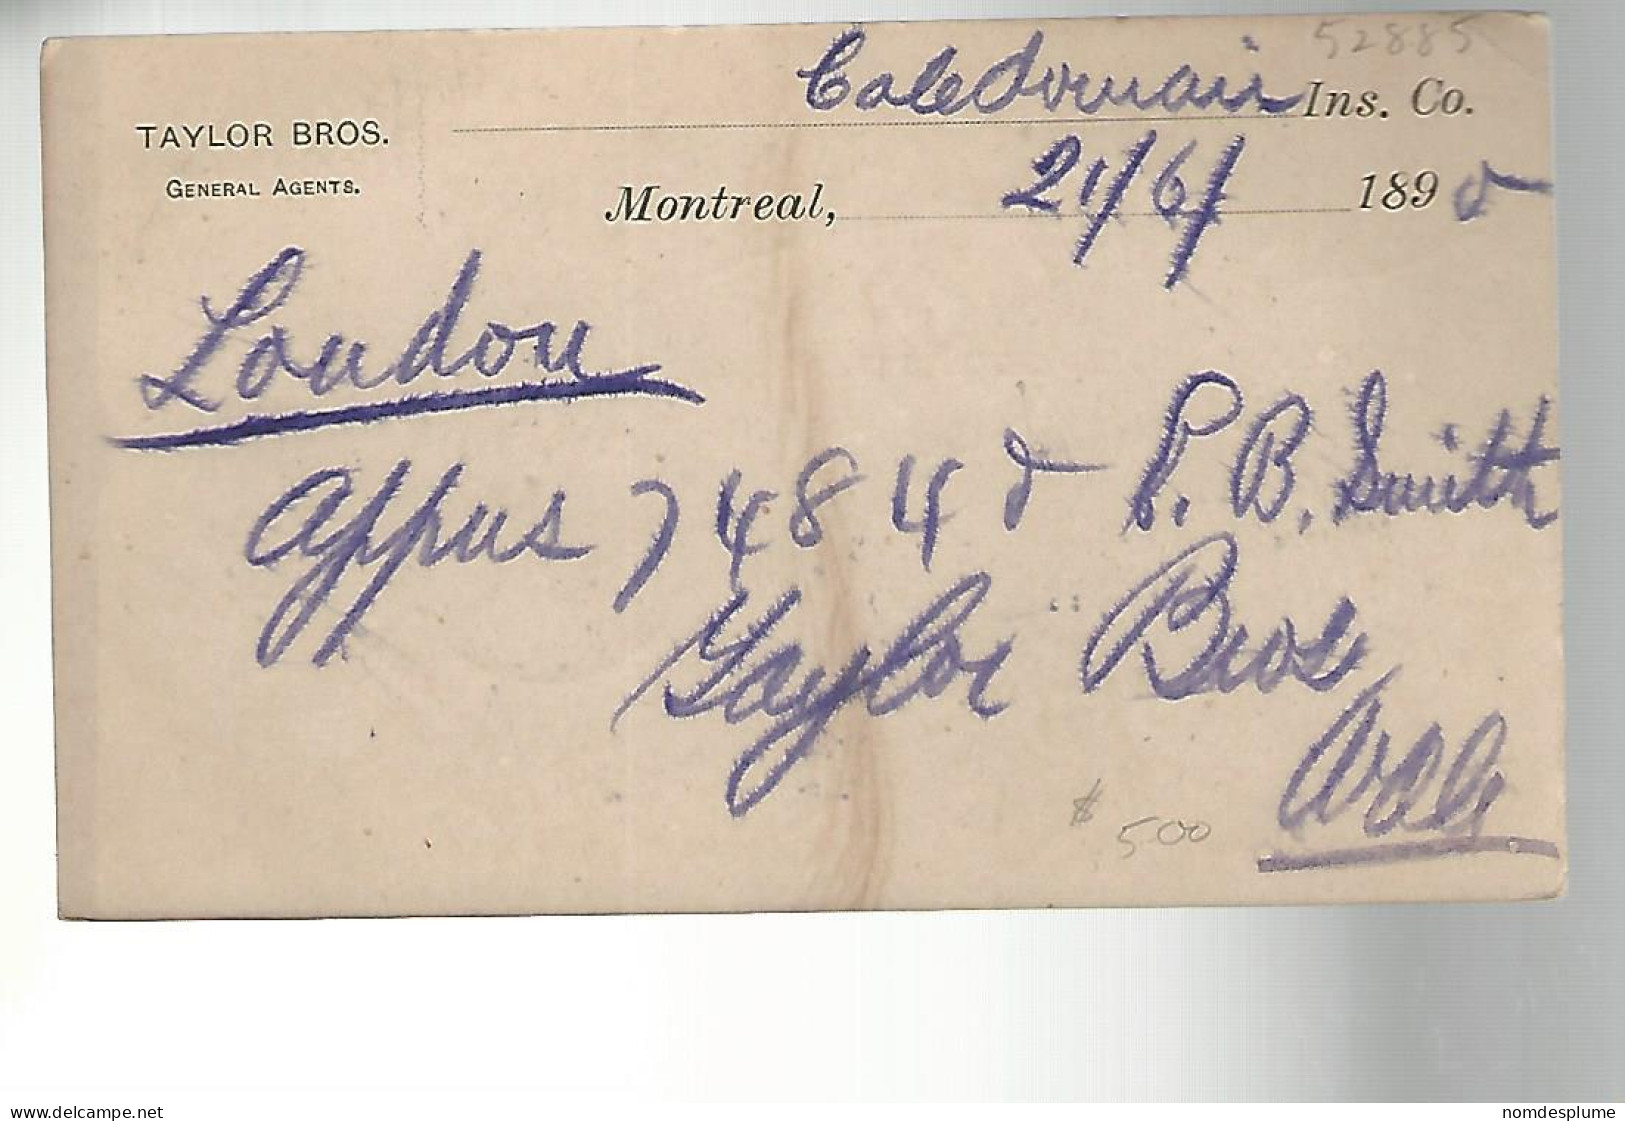 52885
Caledonian Ins. Co.
TAYLOR BROS.
GENERAL AGENTS.
Montreal, 21/6/ 1895
London
Appus 74845 P. B. Smith
Taylor Bros
$ 500
delcampe.net
nomdesplume